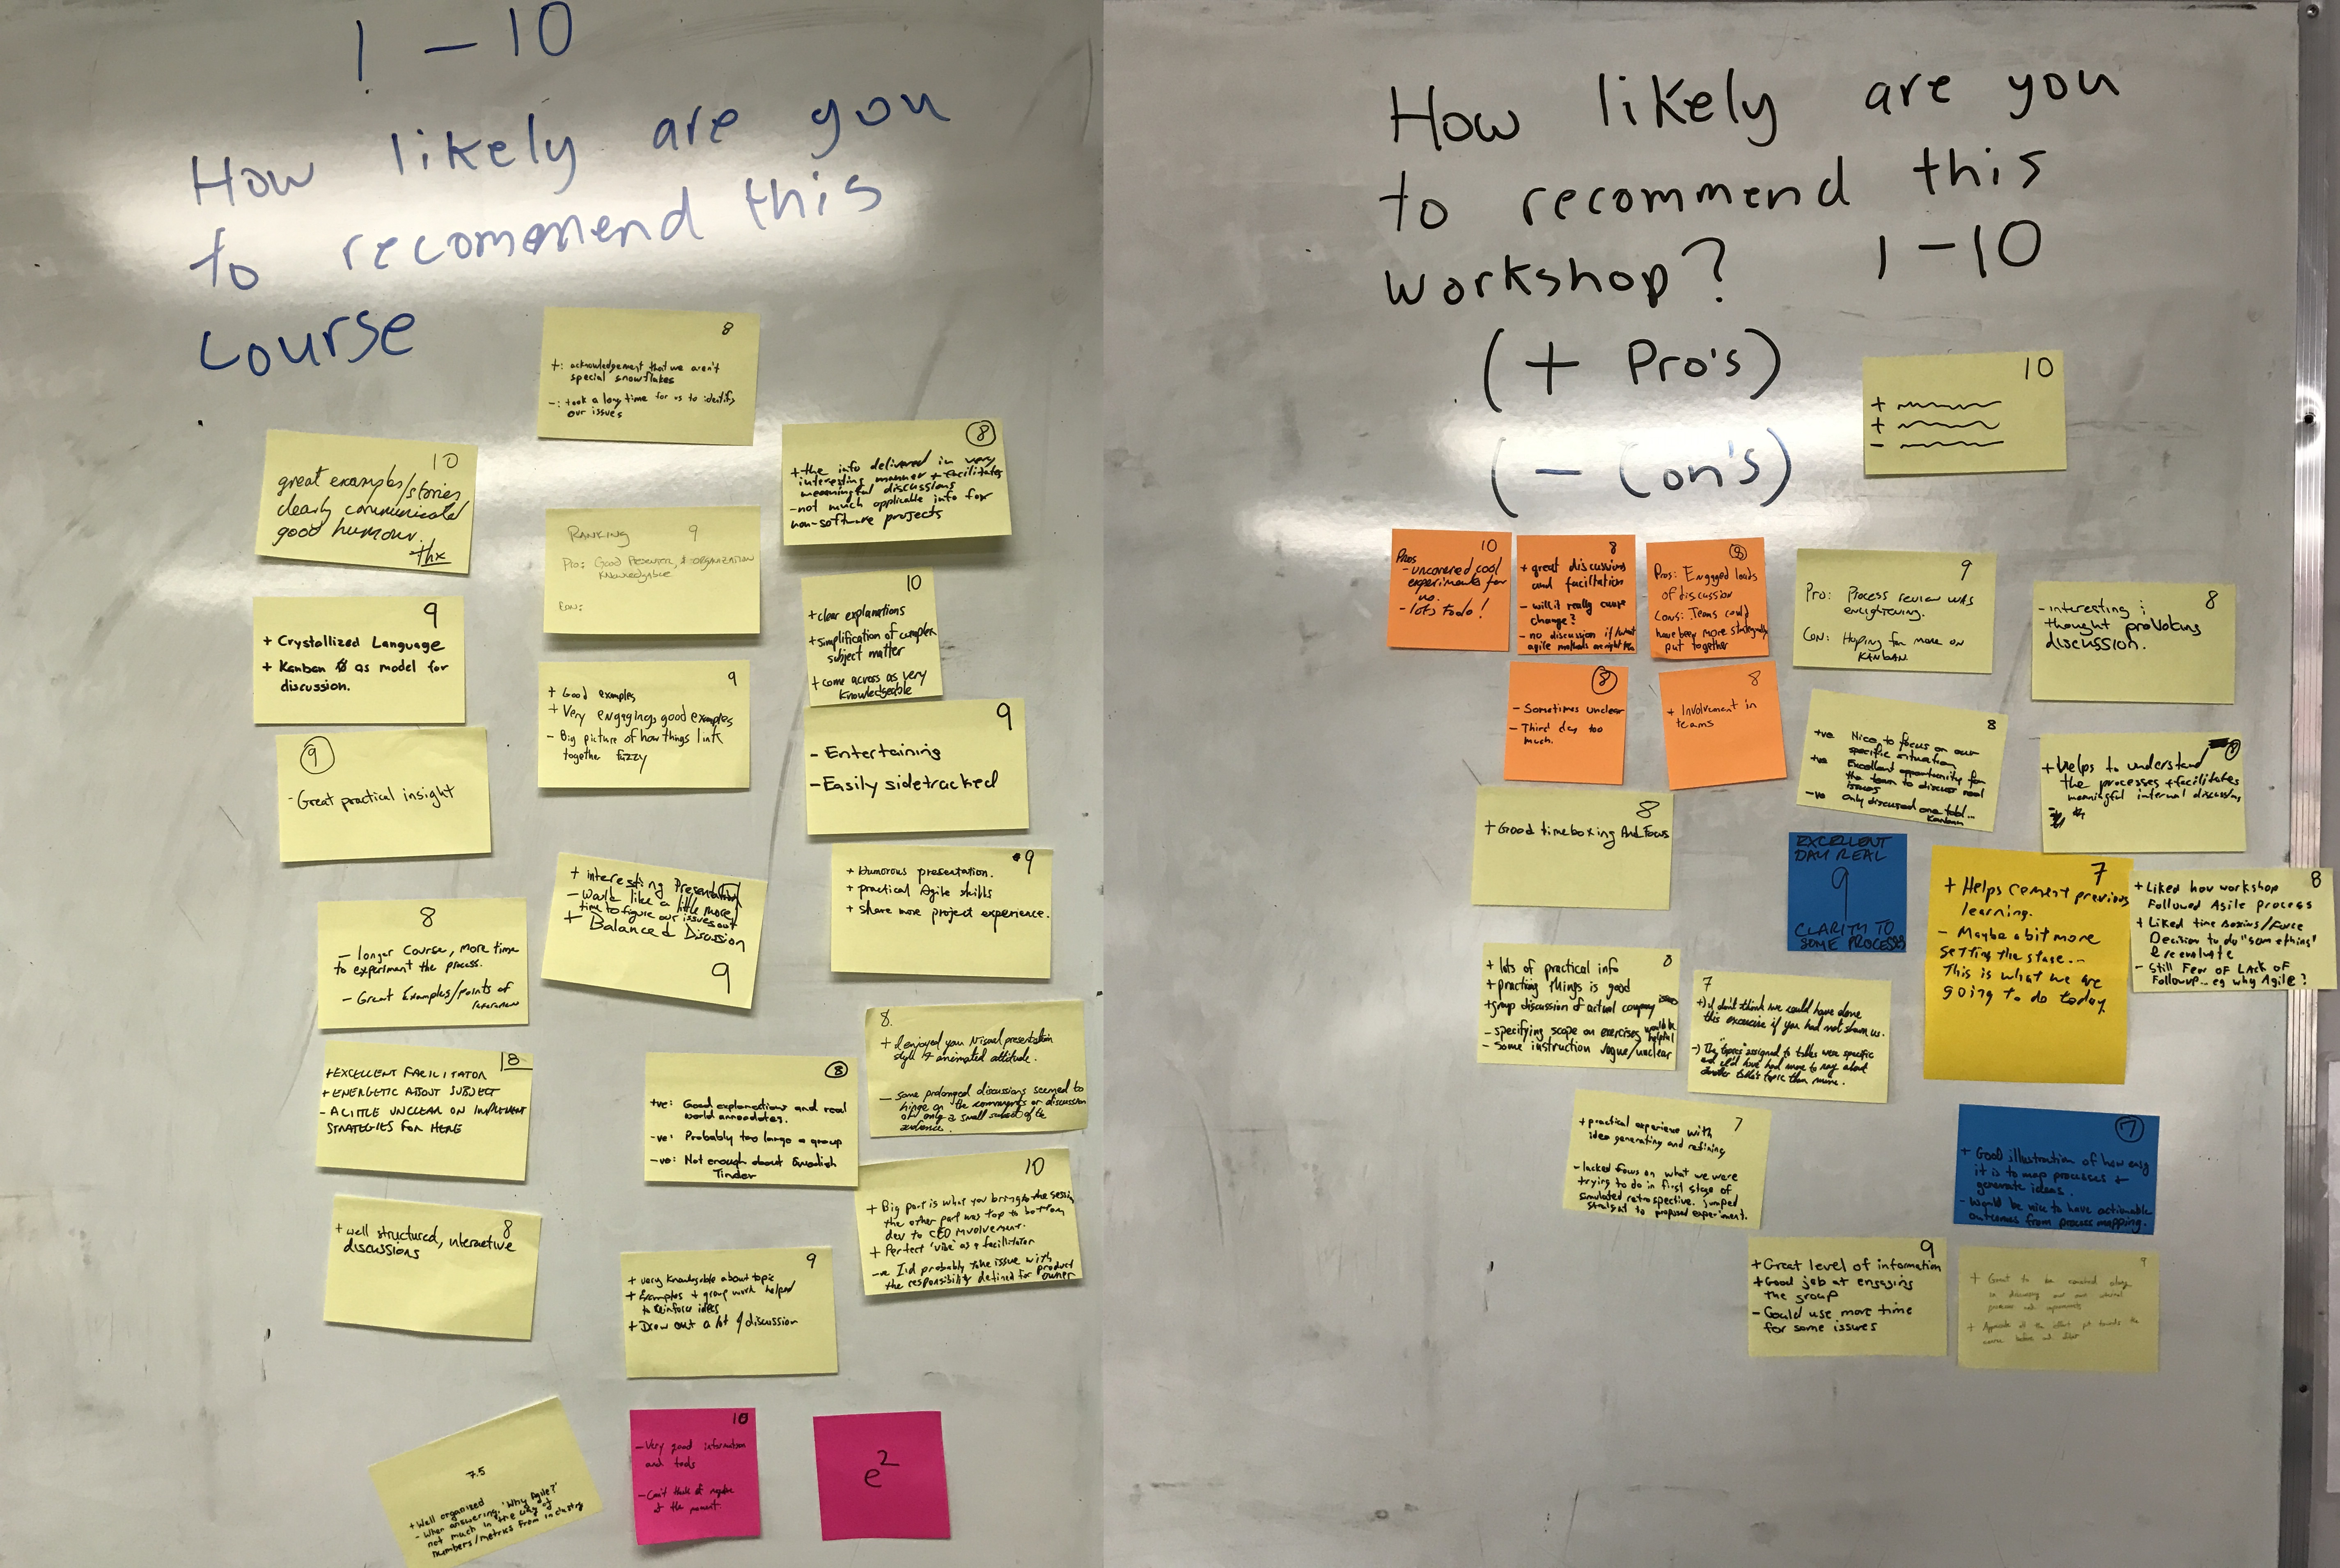 1 - 10
How likely are you
to recommend this
course
8
+: acknowledgement that we aren't
special snowflakes
-: took a long time for us to identify
our issues
10
great examples/stories
clearly communicated
good humour.
thx
8
+ the info delivered in very
interesting manner + facilitates
meaningful discussions
- not much applicable info for
non-software projects
RANKING 9
Pro: Good Presenter, & organization
Knowledgable
Con:
9
+ Crystallized Language
+ Kanban as model for
discussion.
10
+ clear explanations
+ simplification of complex
subject matter
+ come across as very
knowledgeable
9
+ Good examples
+ Very engaging, good examples
- Big picture of how things link
together fuzzy
9
- Entertaining
- Easily sidetracked
9
- Great practical insight
9
+ Humorous presentation.
+ practical Agile skills
+ share more project experience.
+ Interesting Presentation
- Would like a little more
time to figure our issues out
+ Balanced Discussion
9
8
- longer course, more time
to experiment the process.
- Great Examples/points of
8.
+ I enjoyed your visual presentation
style & animated attitude.
- some prolonged discussions seemed to
hinge on the comments or discussion
of only a small subset of the
audience.
8
+ EXCELLENT FACILITATOR
+ ENERGETIC ABOUT SUBJECT
- A LITTLE UNCLEAR ON IMPLEMENT
STRATEGIES FOR HERE
8
+ve: Good explanations and real
world annecdotes.
-ve: Probably too large a group
-ve: Not enough about Swedish
Tinder
10
+ Big part is what you bring to the session
the other part was top to bottom
dev to CEO involvement.
+ Perfect 'vibe' as a facilitator
-ve I'd probably take issue with
the responsibility defined for product
owner
8
+ well structured, interactive
discussions
9
+ very knowledgable about topic
+ Examples + group work helped
to reinforce ideas
+ Drew out a lot of discussion
7.5
+ Well organized
- When answering 'Why Agile?'
not much in the way of
numbers/metrics from industry
10
- Very good information
and tools
- Can't think of negative
at the moment.
e²
How likely are you
to recommend this
workshop? 1 - 10
(+ Pro's)
(- Con's)
10
+
+
-
10
Pros
- uncovered cool
experiments for
- lots todo!
8
+ great discussions
and faciltation
- will it really cause
change?
- no discussion if/what
agile methods are right
8
Pros: Engaged loads
of discussion
Cons: Teams could
have been more strategically
put together
9
Pro: Process review was
enlightening.
Con: Hoping for more on
KANBAN.
8
- interesting &
thought provoking
discussion.
8
- Sometimes unclear
- Third day too
much.
8
+ Involvement in
teams
8
+ve Nice to focus on our
specific situation
+ve Excellent opportunity for
the team to discuss real
issues
-ve Only discussed one tool...
Kanban
+ Helps to understand
the processes + facilitates
meaningful internal discussions
8
+ Good timeboxing And Focus
EXCELLENT
DAY REAL
9
CLARITY TO
SOME PROCESSES
7
+ Helps cement previous
learning.
- Maybe a bit more
setting the stage...
This is what we are
going to do today
8
+ Liked how workshop
Followed Agile process
+ Liked time Boxing/Force
Decision to do "something"
& reevaluate
- Still Fear of Lack of
Followup... eg why Agile?
8
+ lots of practical info
+ practicing things is good
+ group discussion of actual company issues
- specifying scope on exercises would be
helpful
- some instruction vague/unclear
7
+) I don't think we could have done
this excercise if you had not shown us.
-) The "topics" assigned to tables were specific
and we'd have had more to say about
another table's topic than mine.
7
+ practical experience with
idea generating and refining
- lacked focus on what we were
trying to do in first stage of
simulated retrospective. jumped
straight to proposed experiment.
7
+ Good illustration of how easy
it is to map processes +
generate ideas.
- Would be nice to have actionable
outcomes from process mapping.
9
+ Great level of information
+ Good job at engaging
the group
- Could use more time
for some issues
9
+ Great to be
+ Appreciate all the effort put towards the
course before and after